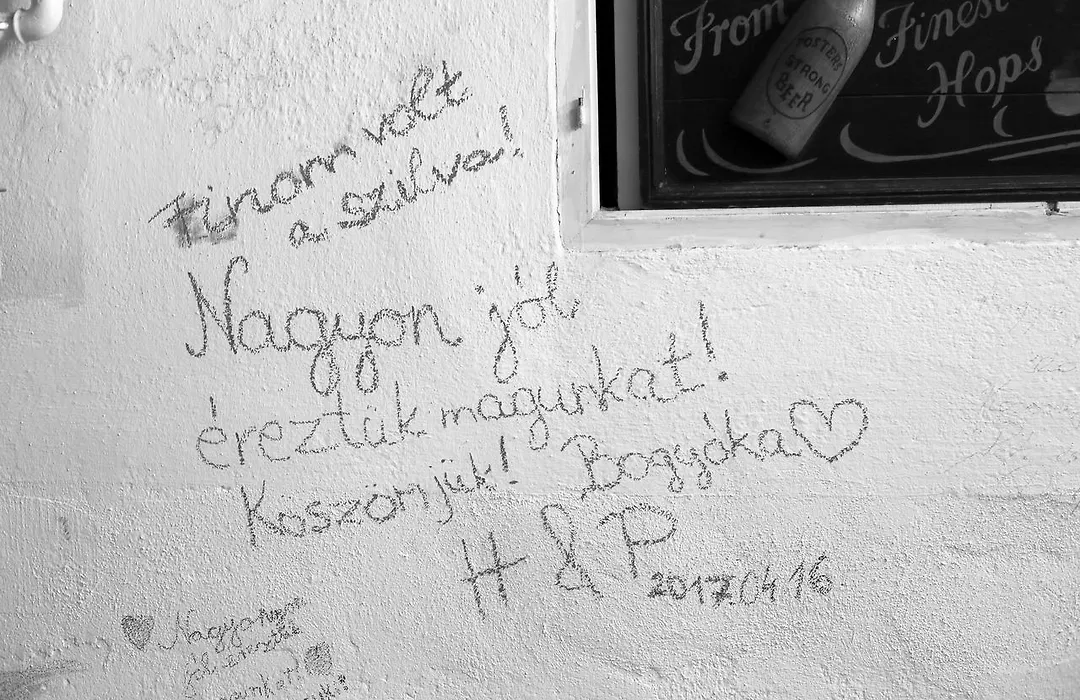 Finom volt
a szilva!
Nagyon jól
éreztük magunkat!
Köszönjük! Bogyóka
H & P
2017.04.16
From Finest
Hops
FOSTERS
STRONG
BEER
Nagyon
jól éreztük
magunkat!